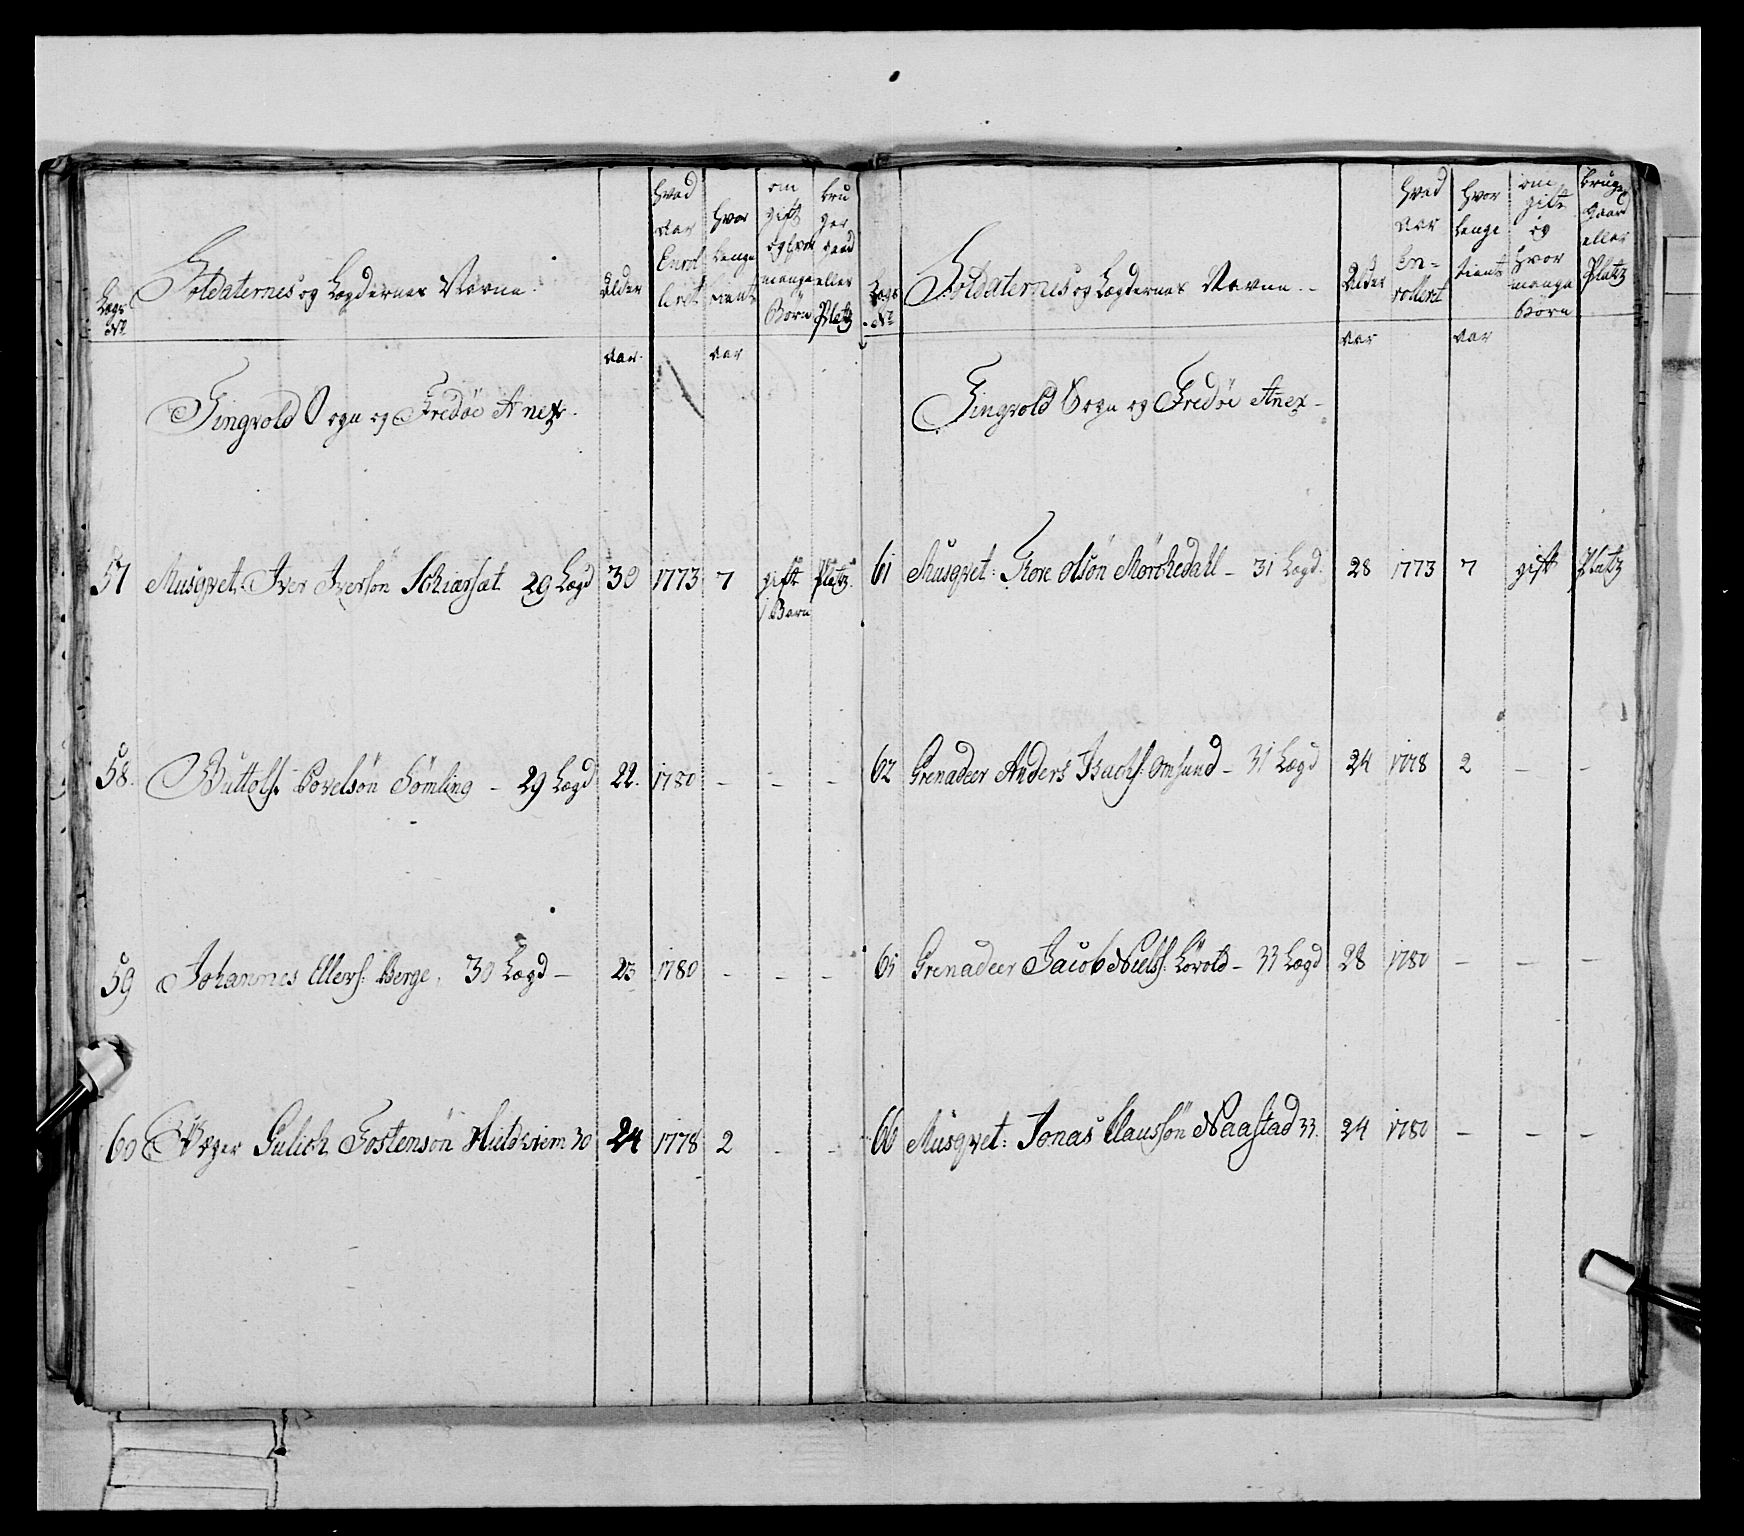 Lægs No | Soldaternes og Lægdernes Navne | Alder | hvad aar Enrolleret | hvor lenge tient | om gift og hvor mange Børn | bruger gaard eller Platz
aar | aar
Tingvold Sogn og Fredöe Anex
57 Musqvet. Iver Iversön Schiarsæt 29 Lægd 30 1773 7 gift Platz
1 Barn
58. Buttolf Povelsön Sömling – 29 Lægd 22. 1780 – – –
59 Johannes Ellevs: Berge, 30 Lægd – 23 1780 – – –
60 Jæger Gulich Tostensön Hieldvem 30 24 1778 2 – –
Lægs No | Soldaternes og Lægdernes Navne | Alder | hvad aar Enrolleret | hvor lenge tient | om gift og hvor mange Børn | bruger gaard eller Platz
aar | aar
Tingvold Sogn og Fredöe Anex –
61 Musqvet: Tore Olsön Mörchedahl – 31 Lægd. 28 1773 7 gift Platz
62 Grenadeer Anders Isachs: Omsund – 31 Lægd 24 1778 2 – –
65 Grenadeer Jacob Nielss: Lövold – 33 Lægd 28 1780 – – –
66 Musqvet: Jonas Claussön Naastad 33. 24 1780 – – –